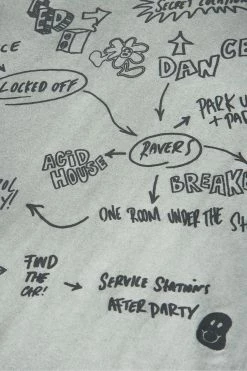 SECRET LOCATION
CE
LOCKED OFF
DANCE
PARK U
+ PA
RAVERS
ACID
HOUSE
BREAK
ONE ROOM UNDER THE
OL
Y!
FIND
THE
CAR!
SERVICE STATIONS
AFTER PARTY